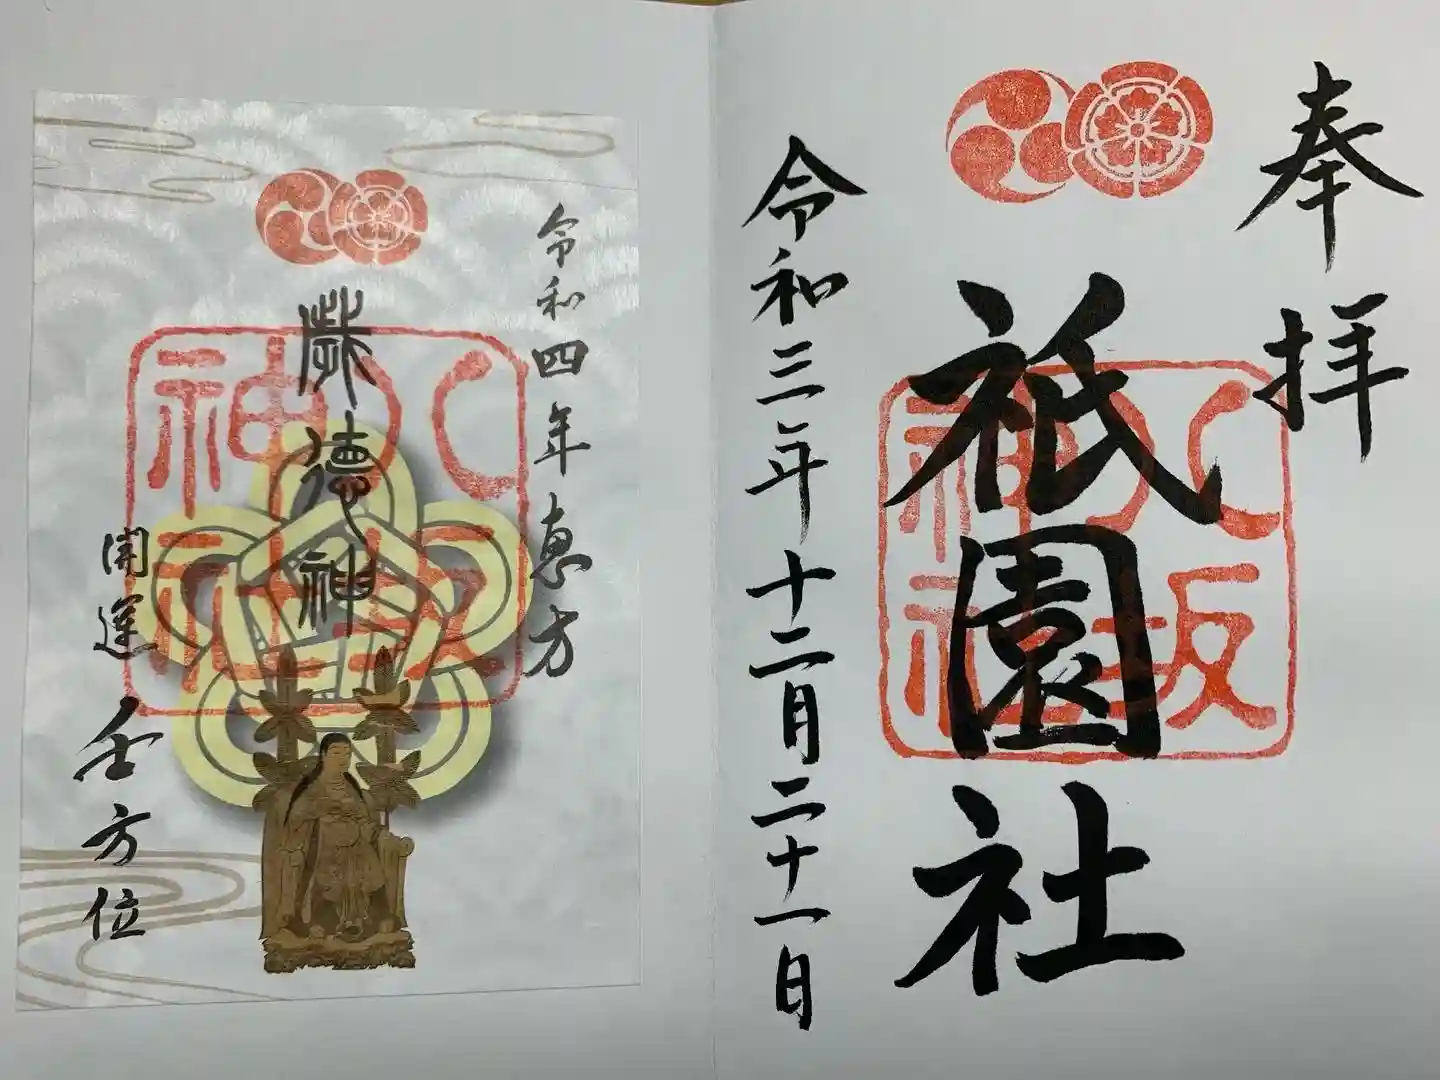 奉拝
祇園社
八坂
神社
令和三年十二月二十一日
令和四年恵方
歳徳神
八坂
神社
開運 壬方位